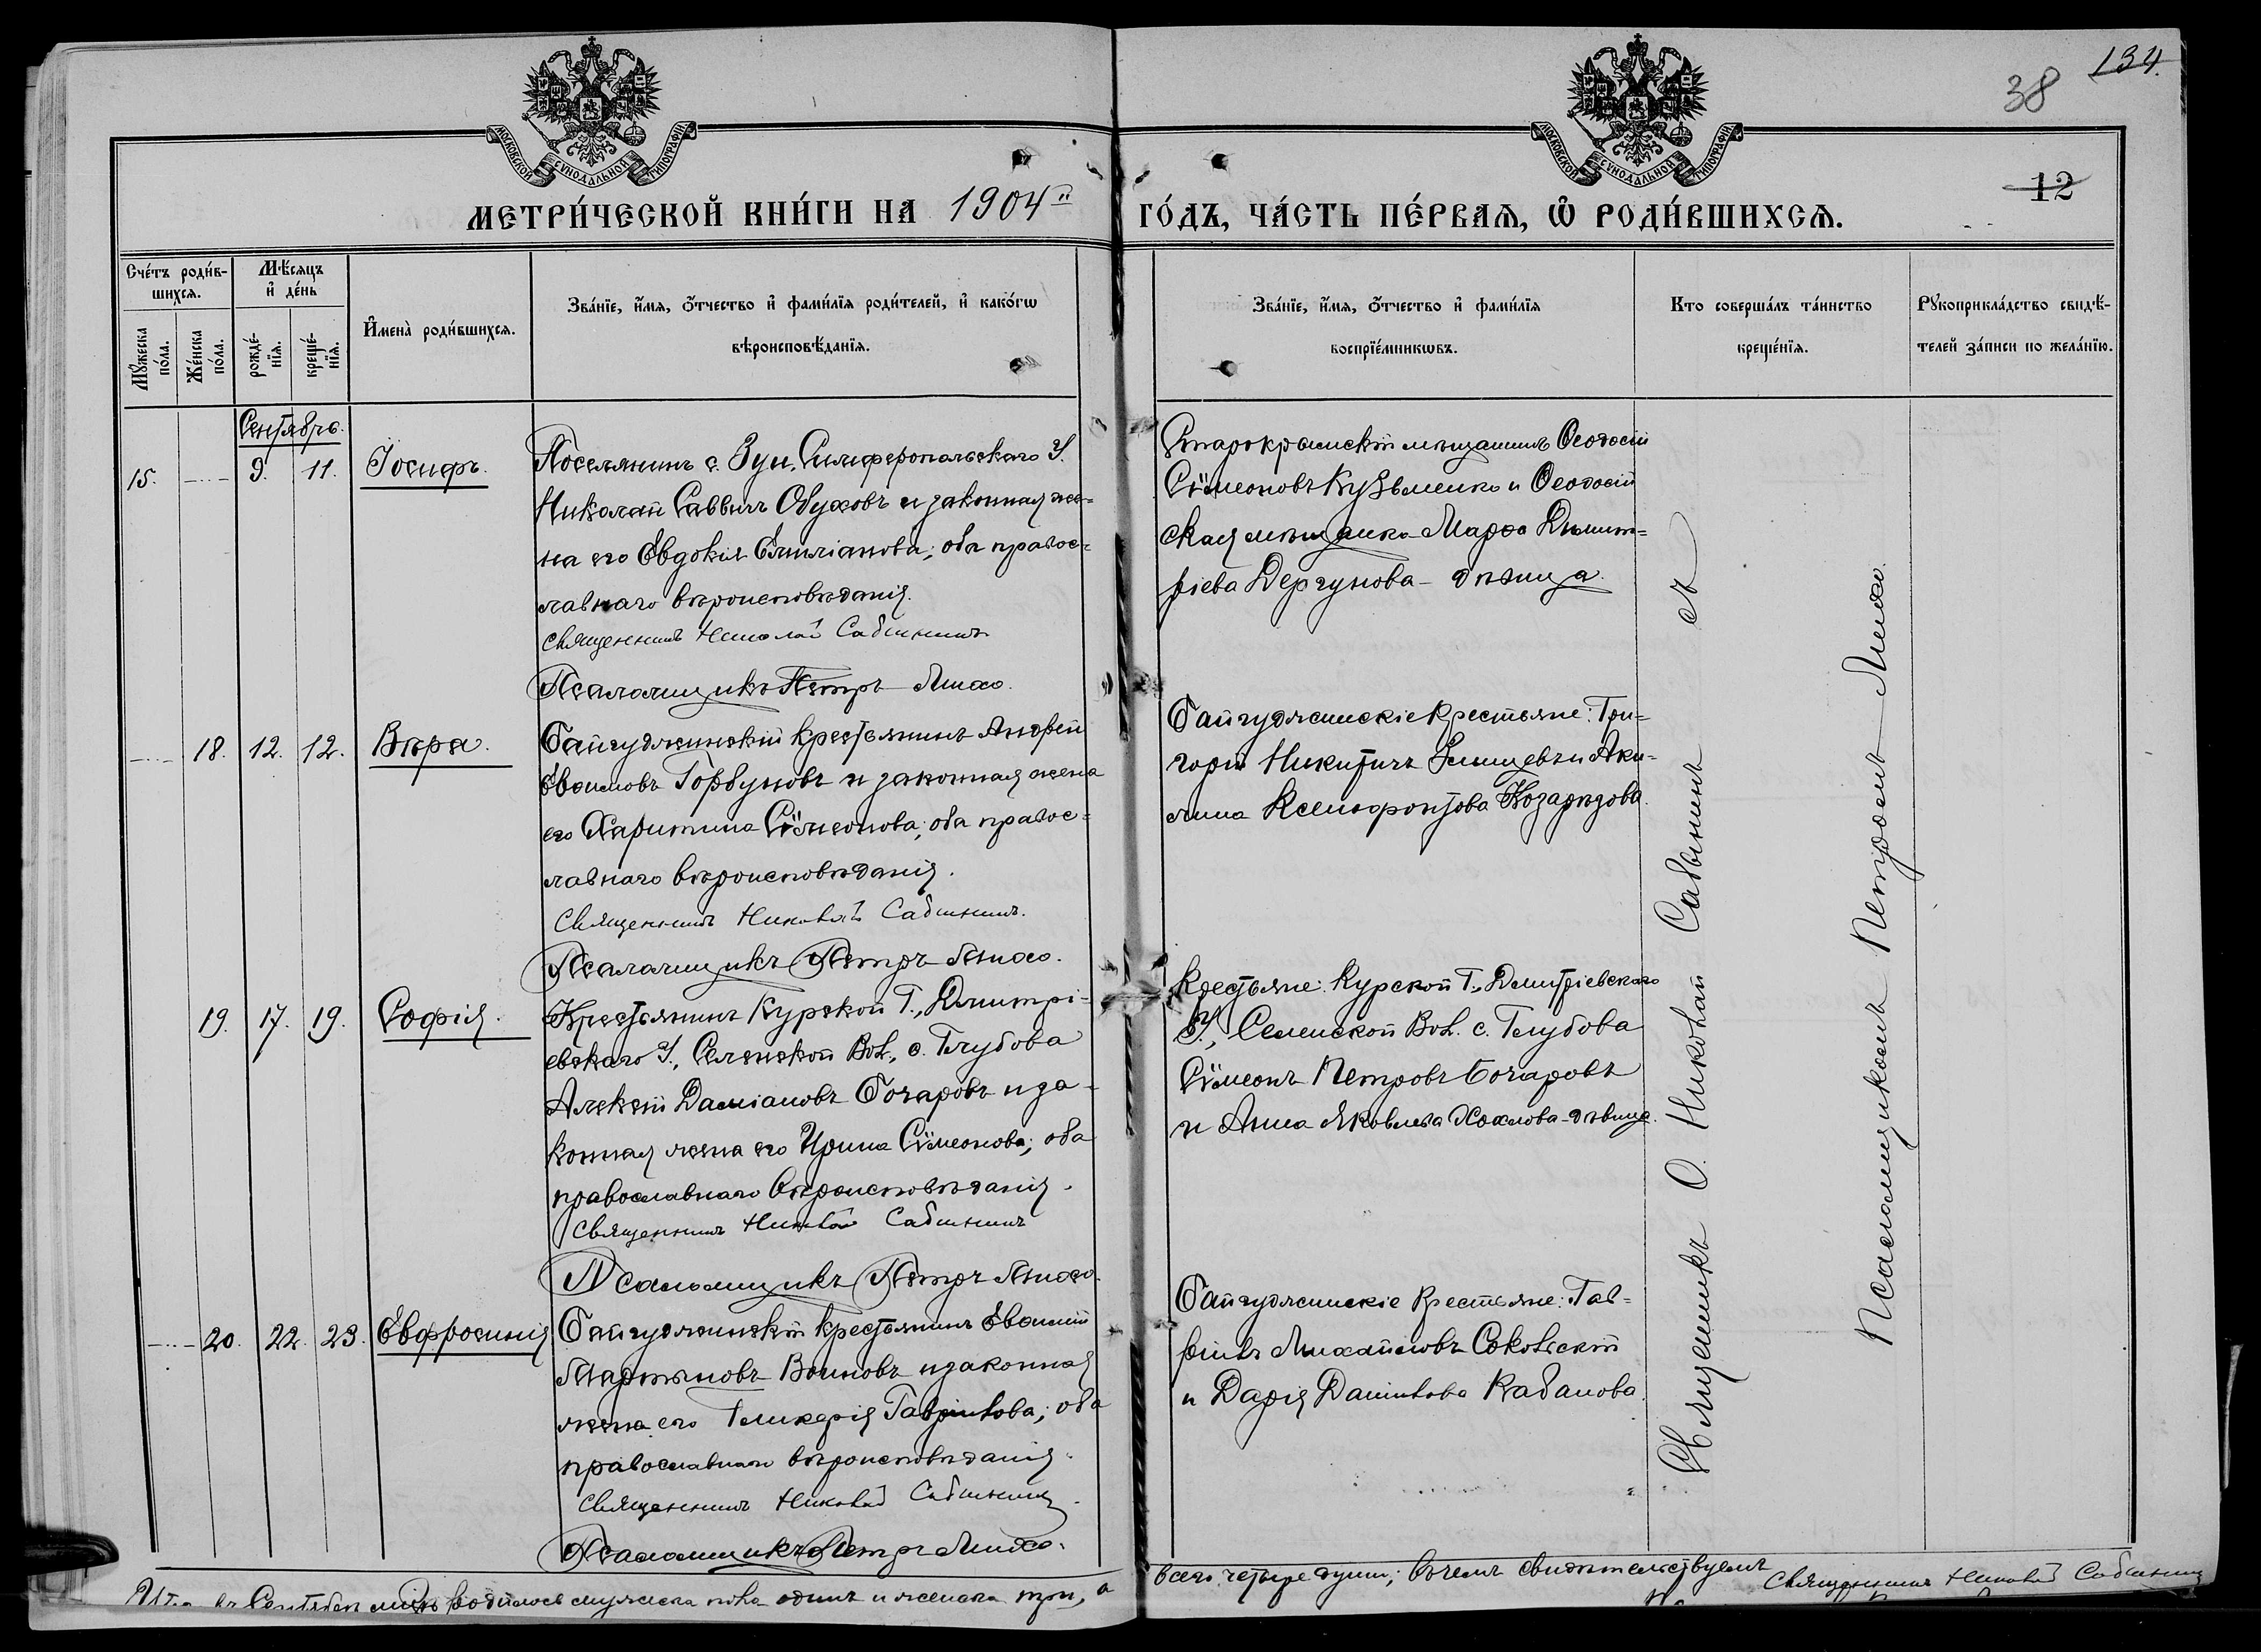 134.
38
12
МОСКОВСКОЙ СУНОДАЛЬНОЙ ТИПОГРАФІИ
МОСКОВСКОЙ СУНОДАЛЬНОЙ ТИПОГРАФІИ
МЕТРИ́ЧЕСКОЙ КНИ́ГИ НА 1904й ГО́ДЪ, ЧА́СТЬ ПЕ́РВАЯ, Ѡ РОДИ́ВШИХСЯ.
Счéтъ роди́в-
шихся.
Мꙋ́жеска пóла.
Жéнска пóла.
Мѣ́сяцъ
и҆ дéнь
рождé-
нїя.
крещé-
нїя.
И҆менà роди́вшихся.
Звáнїе, и҆́мя, ѻ҆́тчество и҆ фами́лїя роди́телей, и҆ какóгѡ
вѣроисповѣ́данїя.
Звáнїе, и҆́мя, ѻ҆́тчество и҆ фами́лїя
воспрїéмникѡвъ.
Кто совершáлъ тáинство
крещéнїя.
Рꙋкоприклáдство свидѣ́-
телей зáписи по желáнїю.
Сентябрь.
15. 9. 11. Іосифъ.
Поселянинъ с. Зуи, Симферопольскаго У.
Николай Саввичъ Обуховъ и законная же=
на его Евдокія Емиліанова; оба правос=
лавнаго вѣроисповѣданія.
Священникъ Николай Савинничъ
Псаломщикъ Петръ Лихо.
Старокрымскій мѣщанинъ Ѳеодосій
Сѵмеоновъ Кузьменко и Ѳеодосій
ская мѣщанка Марѳа Димит=
ріева Дергунова - дѣвица.
18. 12. 12. Вѣра.
Байгуджинскій крестьянинъ Андрей
Евѳимовъ Горбуновъ и законная жена
его Харитина Сѵмеонова; оба правос=
лавнаго вѣроисповѣданія.
Священникъ Николай
Псаломщикъ Петръ Лихо.
Байгуджинскіе крестьяне: Гри=
горій Никитичъ и Аки=
лина Ксенофонтова
19. 17. 19. Софія.
Крестьянинъ Курской Г., Димитрі=
евскаго У., Селенской Вол., с. Глубова
Алексій Даміановъ Бочаровъ и за=
конная жена его Ирина Сѵмеонова; оба
православнаго вѣроисповѣданія.
Священникъ Николай
Псаломщикъ Петръ Лихо.
Крестьяне: Курской Г., Дмитріевскаго
У., Селенской Вол. с. Глубова
Сѵмеонъ Петровъ Бочаровъ
и Анна Яковлева Хохлова - дѣвица.
20. 22. 23. Евфросинія
Байгуджинскій крестьянинъ Евѳимій
Мартыновъ Воиновъ и законная
жена его Гликерія Гавріилова; оба
православнаго вѣроисповѣданія.
Священникъ Николай
Псаломщикъ Петръ Лихо.
Байгуджинскіе крестьяне: Гав=
ріилъ Михайловъ Сокольскій
и Дарія Даніилова Кабанова.
Священникъ О. Николай съ
Псаломщикомъ Петромъ Лихо.
Итого въ Сентябрѣ мцѣ родилось мужска пола одинъ и женска три, а
всего четыре души; въ чемъ свидѣтельствуемъ Священникъ Николай